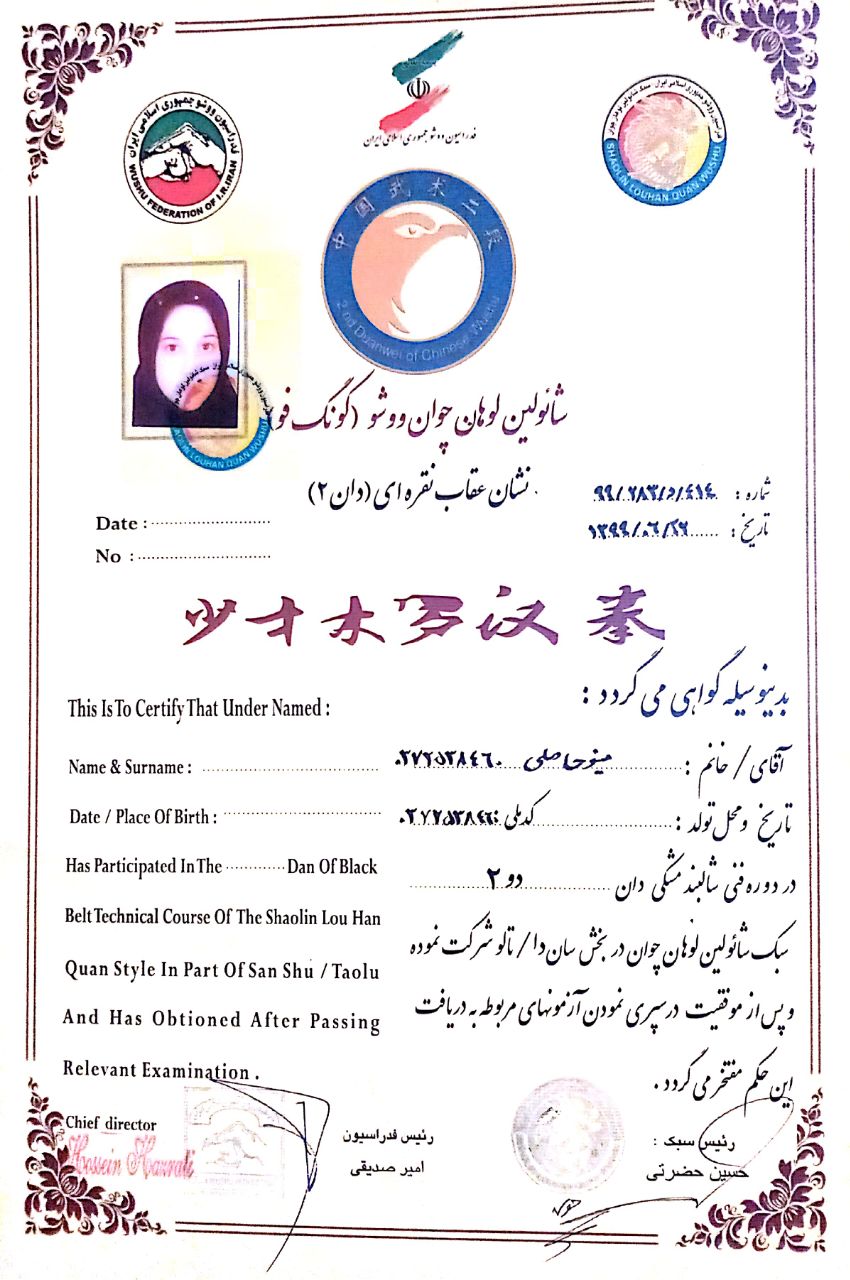 فدراسیون ووشو جمهوری اسلامی ایران
WUSHU FEDERATION OF I.R.IRAN
فدراسیون ووشو جمهوری اسلامی ایران
SHAOLIN LOUHAN QUAN WUSHU
中国武术二段
2 nd Duanwei of Chinese Wushu
شائولین لوهان چوان ووشو (کونگ فو)
نشان عقاب نقره ای (دان ۲)
شماره : ۹۹/۲۸۳/۵/۴۱۴
تاریخ : ۱۳۹۹/۰۶/۲۶
Date :
No :
少林罗汉拳
بدینوسیله گواهی می گردد :
This Is To Certify That Under Named :
آقای / خانم : مینو حاصلی ۰۳۷۲۵۳۸۴۶۰
Name & Surname :
تاریخ و محل تولد : کدملی :
Date / Place Of Birth :
در دوره فنی شالبند مشکی دان دو ۲
Has Participated In The Dan Of Black
سبک شائولین لوهان چوان در بخش سان دا / تالو شرکت نموده
Belt Technical Course Of The Shaolin Lou Han
و پس از موفقیت در سپری نمودن آزمونهای مربوطه به دریافت
Quan Style In Part Of San Shu / Taolu
این حکم مفتخر می گردد .
And Has Obtioned After Passing
Relevant Examination .
Chief director
Hossein Hazrati
رئیس فدراسیون
امیر صدیقی
رئیس سبک :
حسین حضرتی